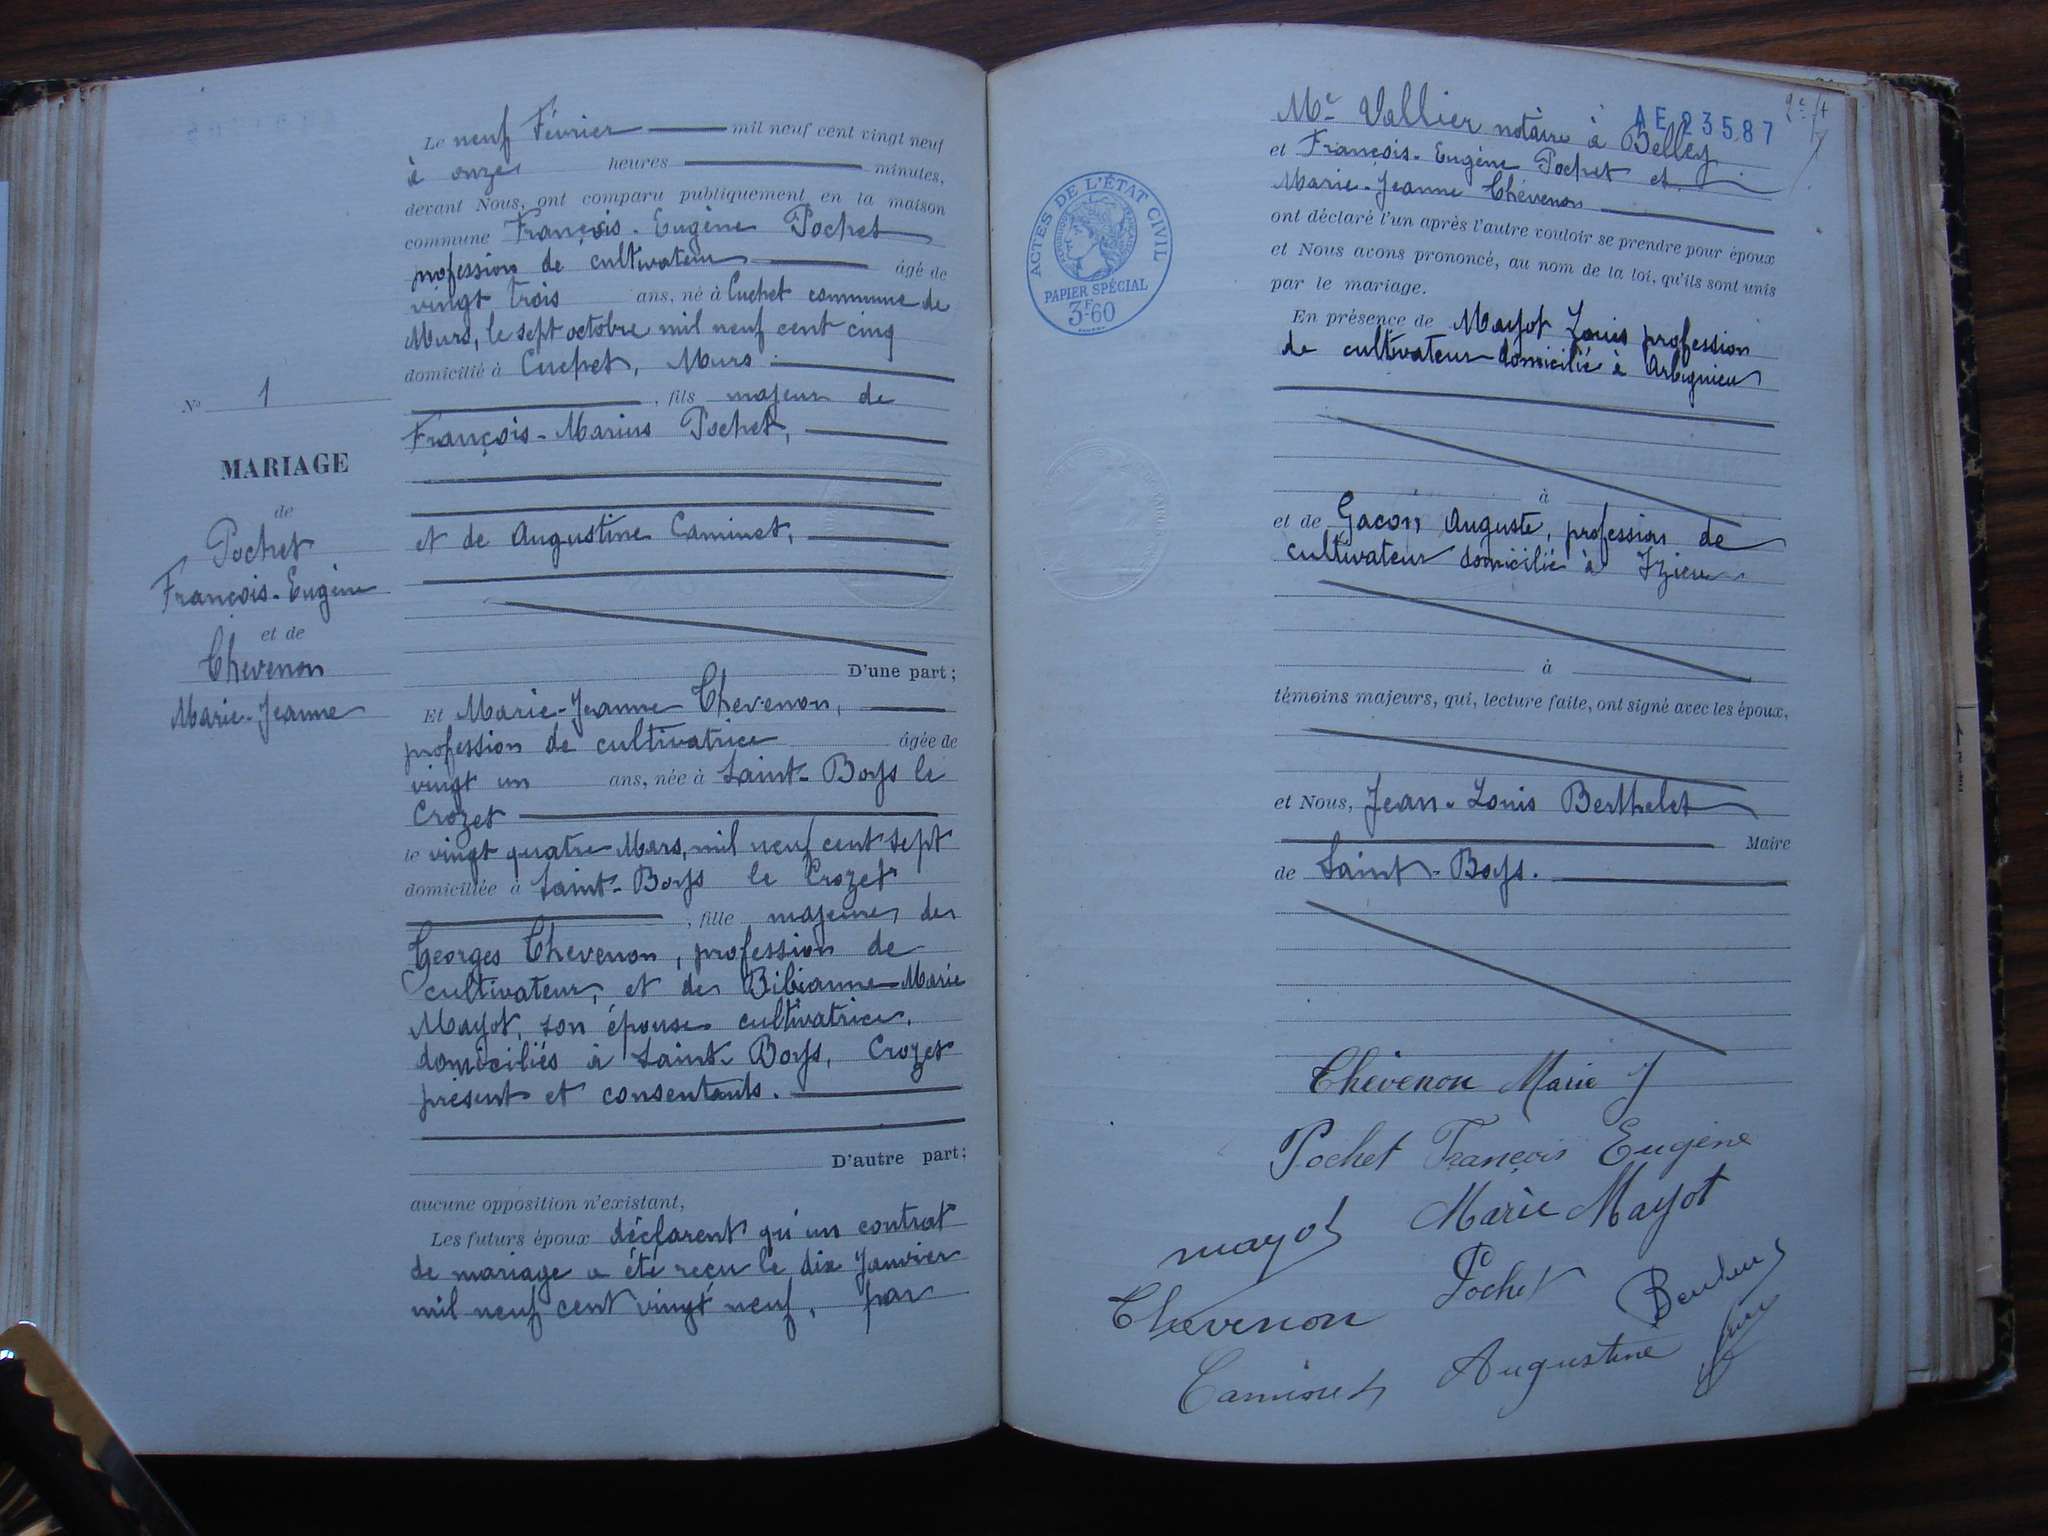 Le neuf Février mil neuf cent vingt neuf
à onze heures minutes,
devant Nous, ont comparu publiquement en la maison
commune François-Eugène Pochet
profession de cultivateur âgé de
vingt trois ans, né à Cuchet commune de
Murs, le sept octobre mil neuf cent cinq
domicilié à Cuchet, Murs
, fils majeur de
François-Marius Pochet,
et de Augustine Caminet,
D'une part;
N° 1
MARIAGE
de
Pochet
François-Eugène
et de
Chevenon
Marie-Jeanne
Et Marie-Jeanne Chevenon,
profession de cultivatrice âgée de
vingt un ans, née à Saint-Boys le
Crozet
le vingt quatre Mars, mil neuf cent sept
domiciliée à Saint-Boys le Crozet
, fille majeure de
Georges Chevenon, profession de
cultivateur, et de Bibianne-Marie
Mayot, son épouse cultivatrice,
domiciliés à Saint-Boys, Crozet
présent et consentants.
D'autre part;
aucune opposition n'existant,
Les futurs époux déclarent qu'un contrat
de mariage a été reçu le dix Janvier
mil neuf cent vingt neuf, par
AE 23587
Me Vallier notaire à Belley
et François-Eugène Pochet et
Marie-Jeanne Chévenon
ont déclaré l'un après l'autre vouloir se prendre pour époux
et Nous avons prononcé, au nom de la loi, qu'ils sont unis
par le mariage.
ACTES DE L'ÉTAT CIVIL
PAPIER SPÉCIAL
3F60
En présence de Mayot Louis profession
de cultivateur domicilié à Arbignieu
à
et de Gacon Auguste, profession de
cultivateur domicilié à Izieu
à
témoins majeurs, qui, lecture faite, ont signé avec les époux,
et Nous, Jean-Louis Berthelet
Maire
de Saint-Boys.
Chévenon Marie J
Pochet François Eugène
mayot Marie Mayot
Chevenon Pochet
Caminet Augustine